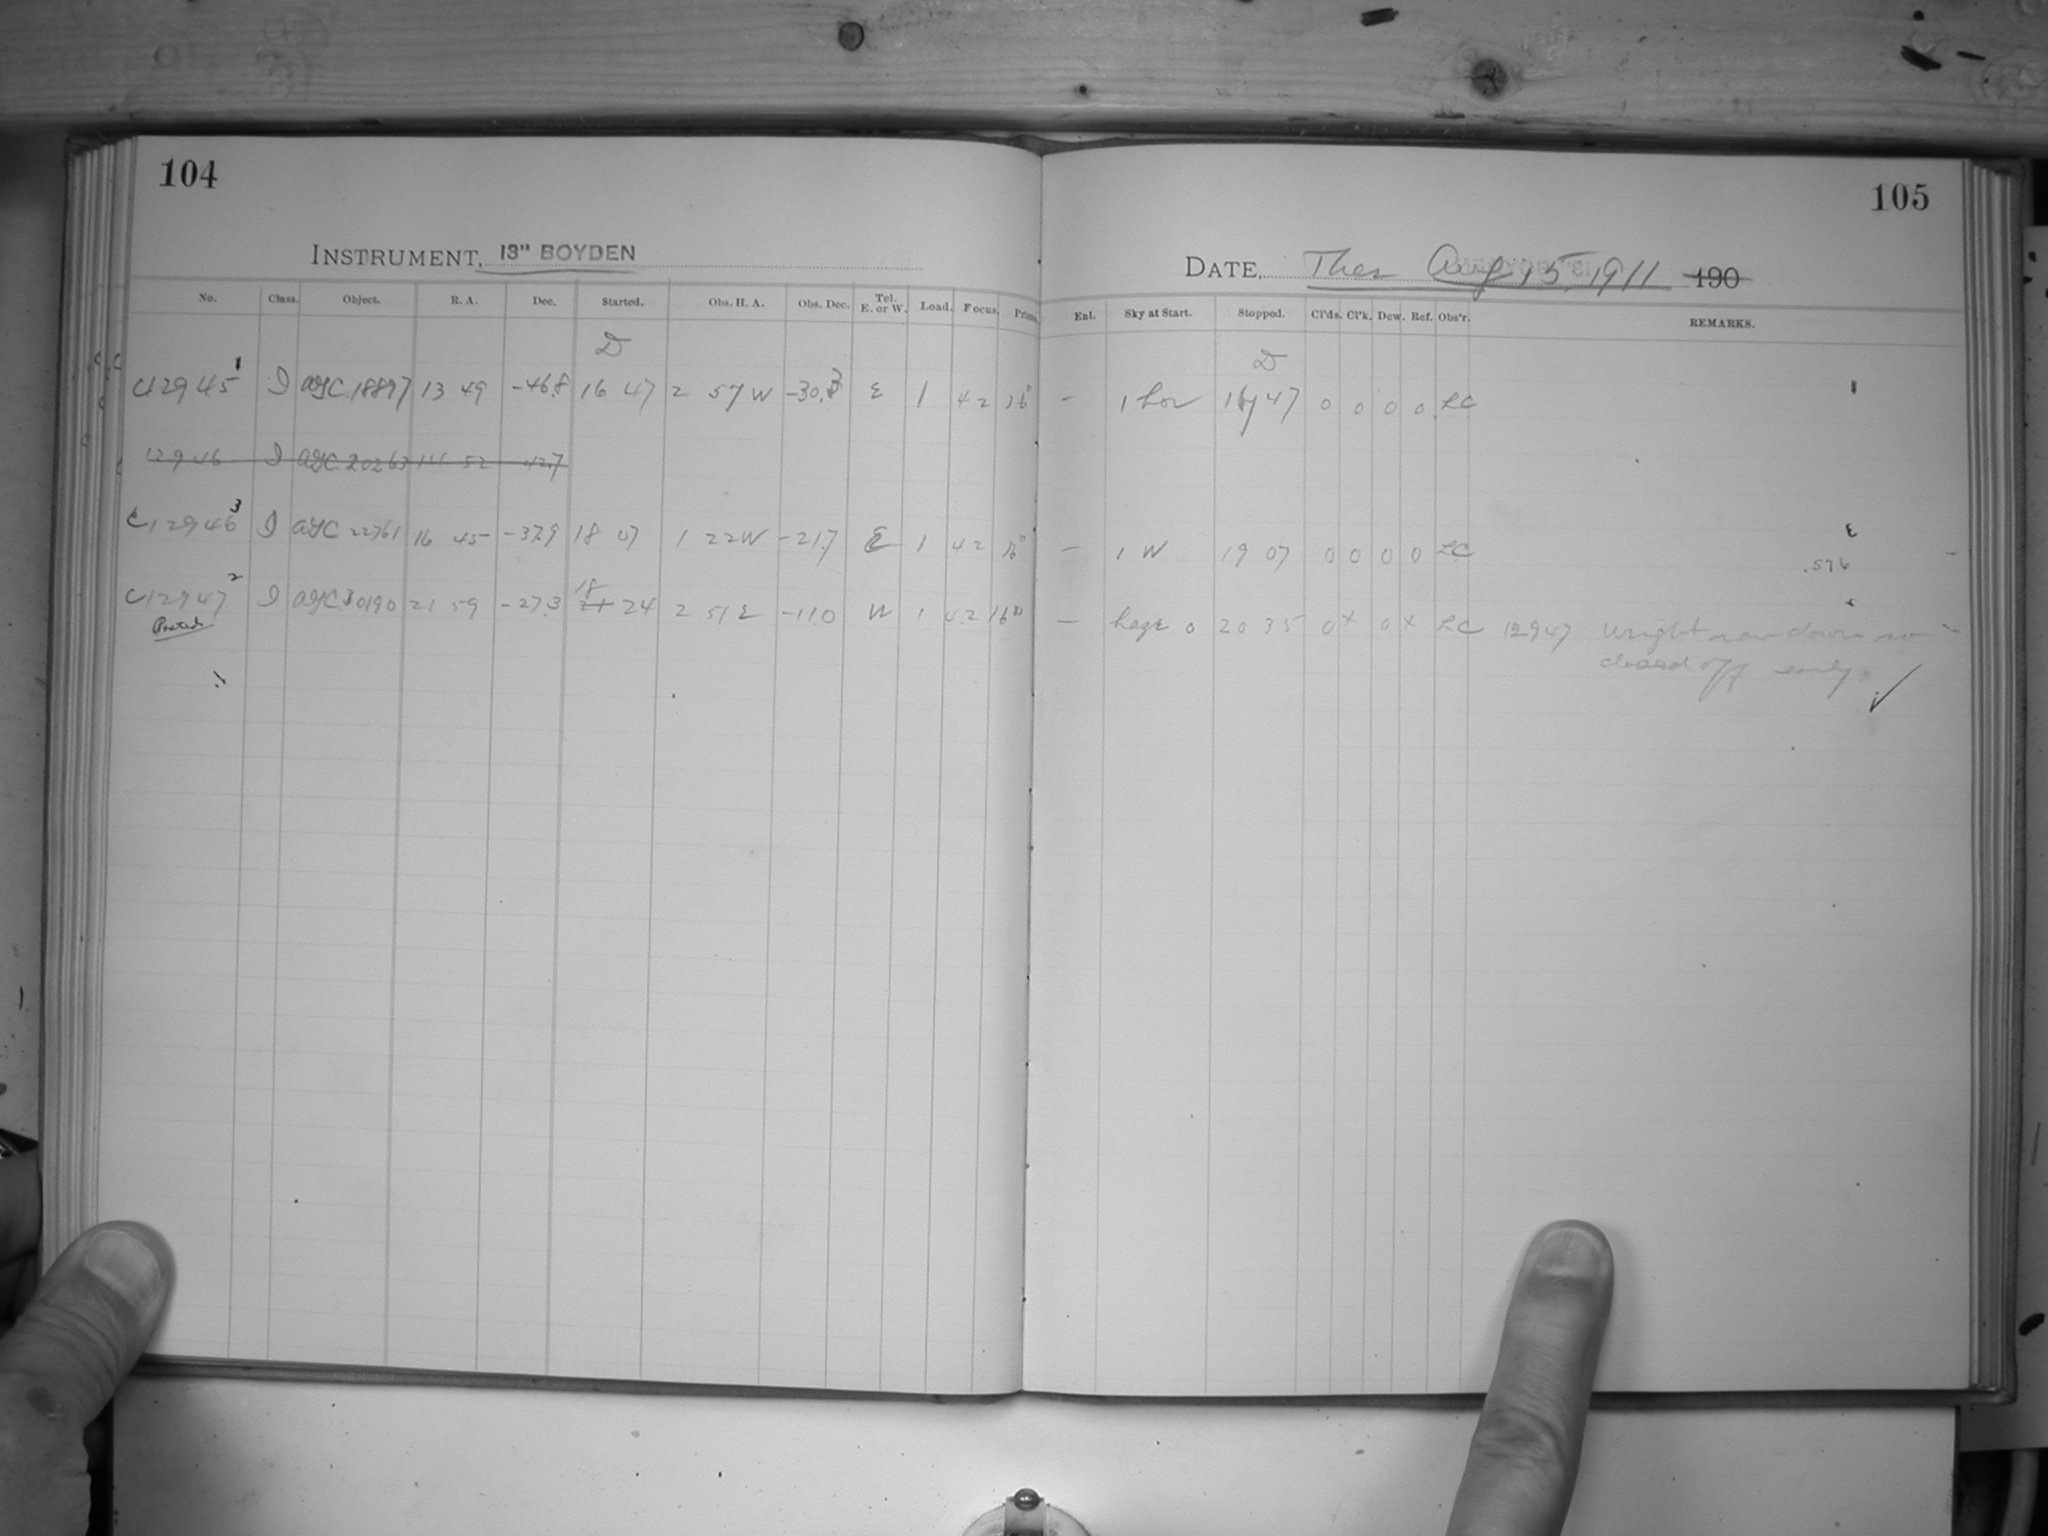 104
105
INSTRUMENT, 13" BOYDEN
DATE, Thes Aug 15, 1911 190
No. Class. Object. R. A. Dec. Started. Obs. H. A. Obs. Dec. Tel. E. or W. Load. Focus. Prism. Enl. Sky at Start. Stopped. Cl'ds. Cl'k. Dew. Ref. Obs'r. REMARKS.
D D
C12945 1 I AGC 18897 13 49 -46.8 16 47 2 57 W -30.3 E 1 42 16° - 1 hor 17 47 0 0 0 0 LC
12946 I AGC 20263 14 52 -42.7
C12946 3 I AGC 22761 16 45 -37.9 18 07 1 22 W -21.7 E 1 42 16° - 1 W 19 07 0 0 0 0 LC
.576
C12947 2 I AGC 30190 21 59 -27.3 18 24 2 51 E -11.0 W 1 42 16° - haze 0 20 35 0 x 0 x LC 12947 Weight ran down so
closed off early.